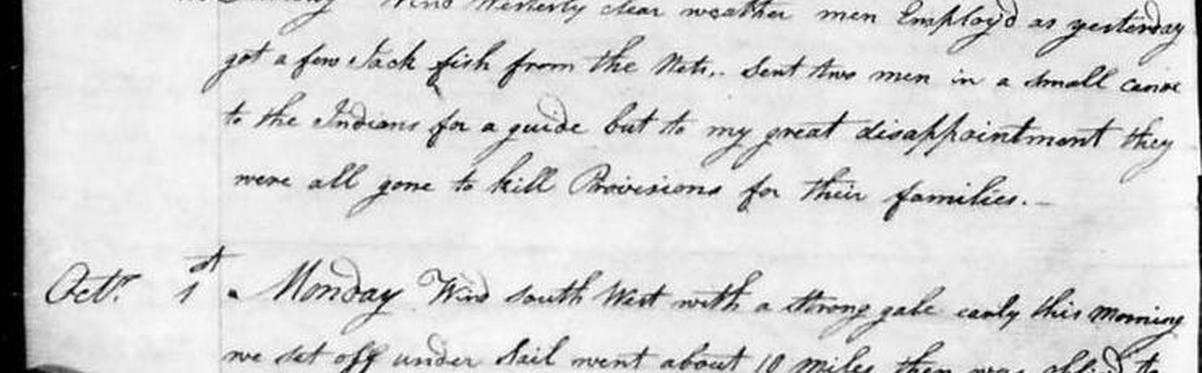 Sunday Wind Westerly clear weather men Employ'd as yesterday
got a few Jack fish from the Nets,. Sent two men in a small canoe
to the Indians for a guide but to my great disappointment they
were all gone to kill Provisions for their families.—
Octr. 1st. Monday Wind South West with a strong gale early this morning
we set off under Sail went about 10 miles then was oblig'd to